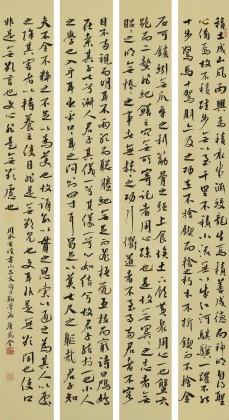 積土成山風雨興焉積水成淵蛟龍生焉積善成德而神明自得聖
心備焉故不積跬步無以至千里不積小流無以成江河騏驥一躍不能
十步駑馬十駕則亦及之功在不舍鍥而舍之朽木不折鍥而不舍
金石可鏤螾無爪牙之利筋骨之強上食埃土下飲黃泉用心一也蟹六
跪而二螯非蛇蟺之穴無可寄託者用心躁也是故無冥冥之志者無
昭昭之明無惛惛之事者無赫赫之功行衢道者不至事兩君者不容
目不兩視而明耳不兩聽而聰
在桑其子七兮淑人君子其儀一兮其儀一兮心如結兮
之學也入乎耳出乎口口耳之間則四寸耳曷足以美七尺之軀哉君子知
夫不全不粹之不足以為美也故誦數以貫之思索以通之為其人以處
之除其害者以持養之使目非是無欲見也使耳非是無欲聞也使口
非是無欲言也使心非是無欲慮也